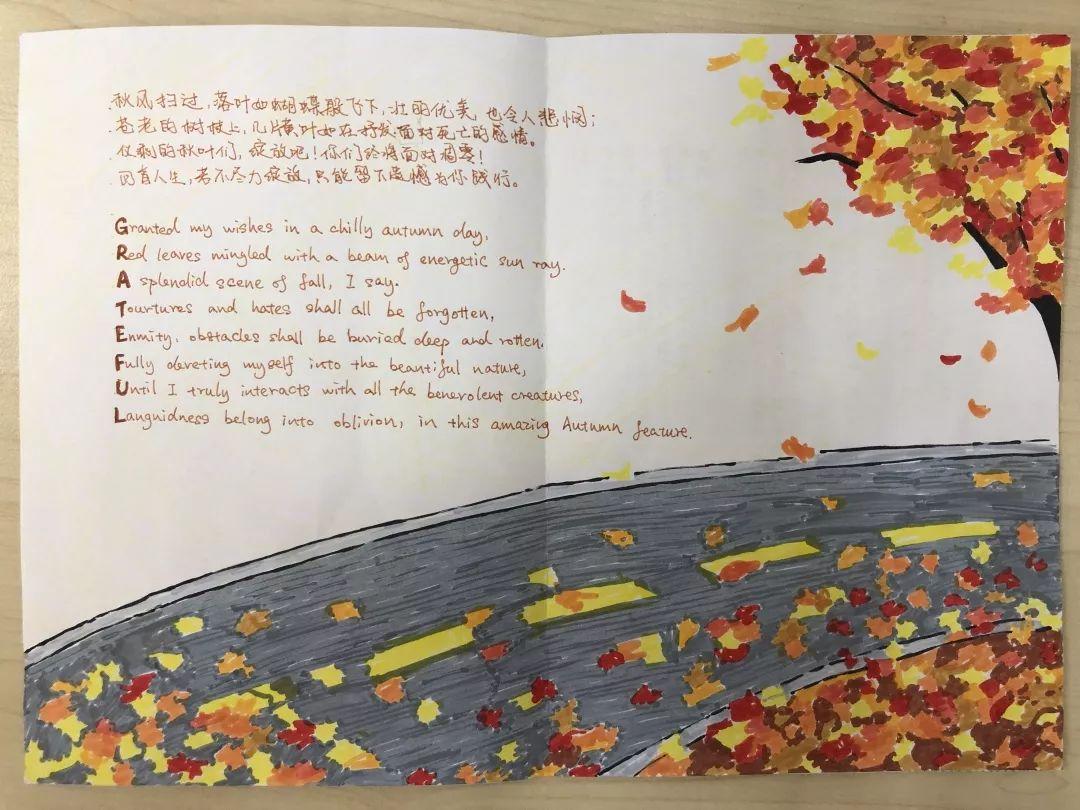 秋风扫过，落叶如蝴蝶般飞下，壮丽优美，也令人悲悯；
苍老的树枝上，几片黄叶如在抒发面对死亡的感情。
仅剩的秋叶们，绽放吧！你们终将面对凋零！
回首人生，若不尽力绽放，只能留下遗憾为你践行。
Granted my wishes in a chilly autumn day,
Red leaves mingled with a beam of energetic sun ray.
A splendid scene of fall, I say.
Tourtures and hates shall all be forgotten,
Enmity, obstacles shall be buried deep and rotten.
Fully devoting myself into the beautiful nature,
Until I truly interacts with all the benevolent creatures,
Languidness belong into oblivion, in this amazing Autumn feature.